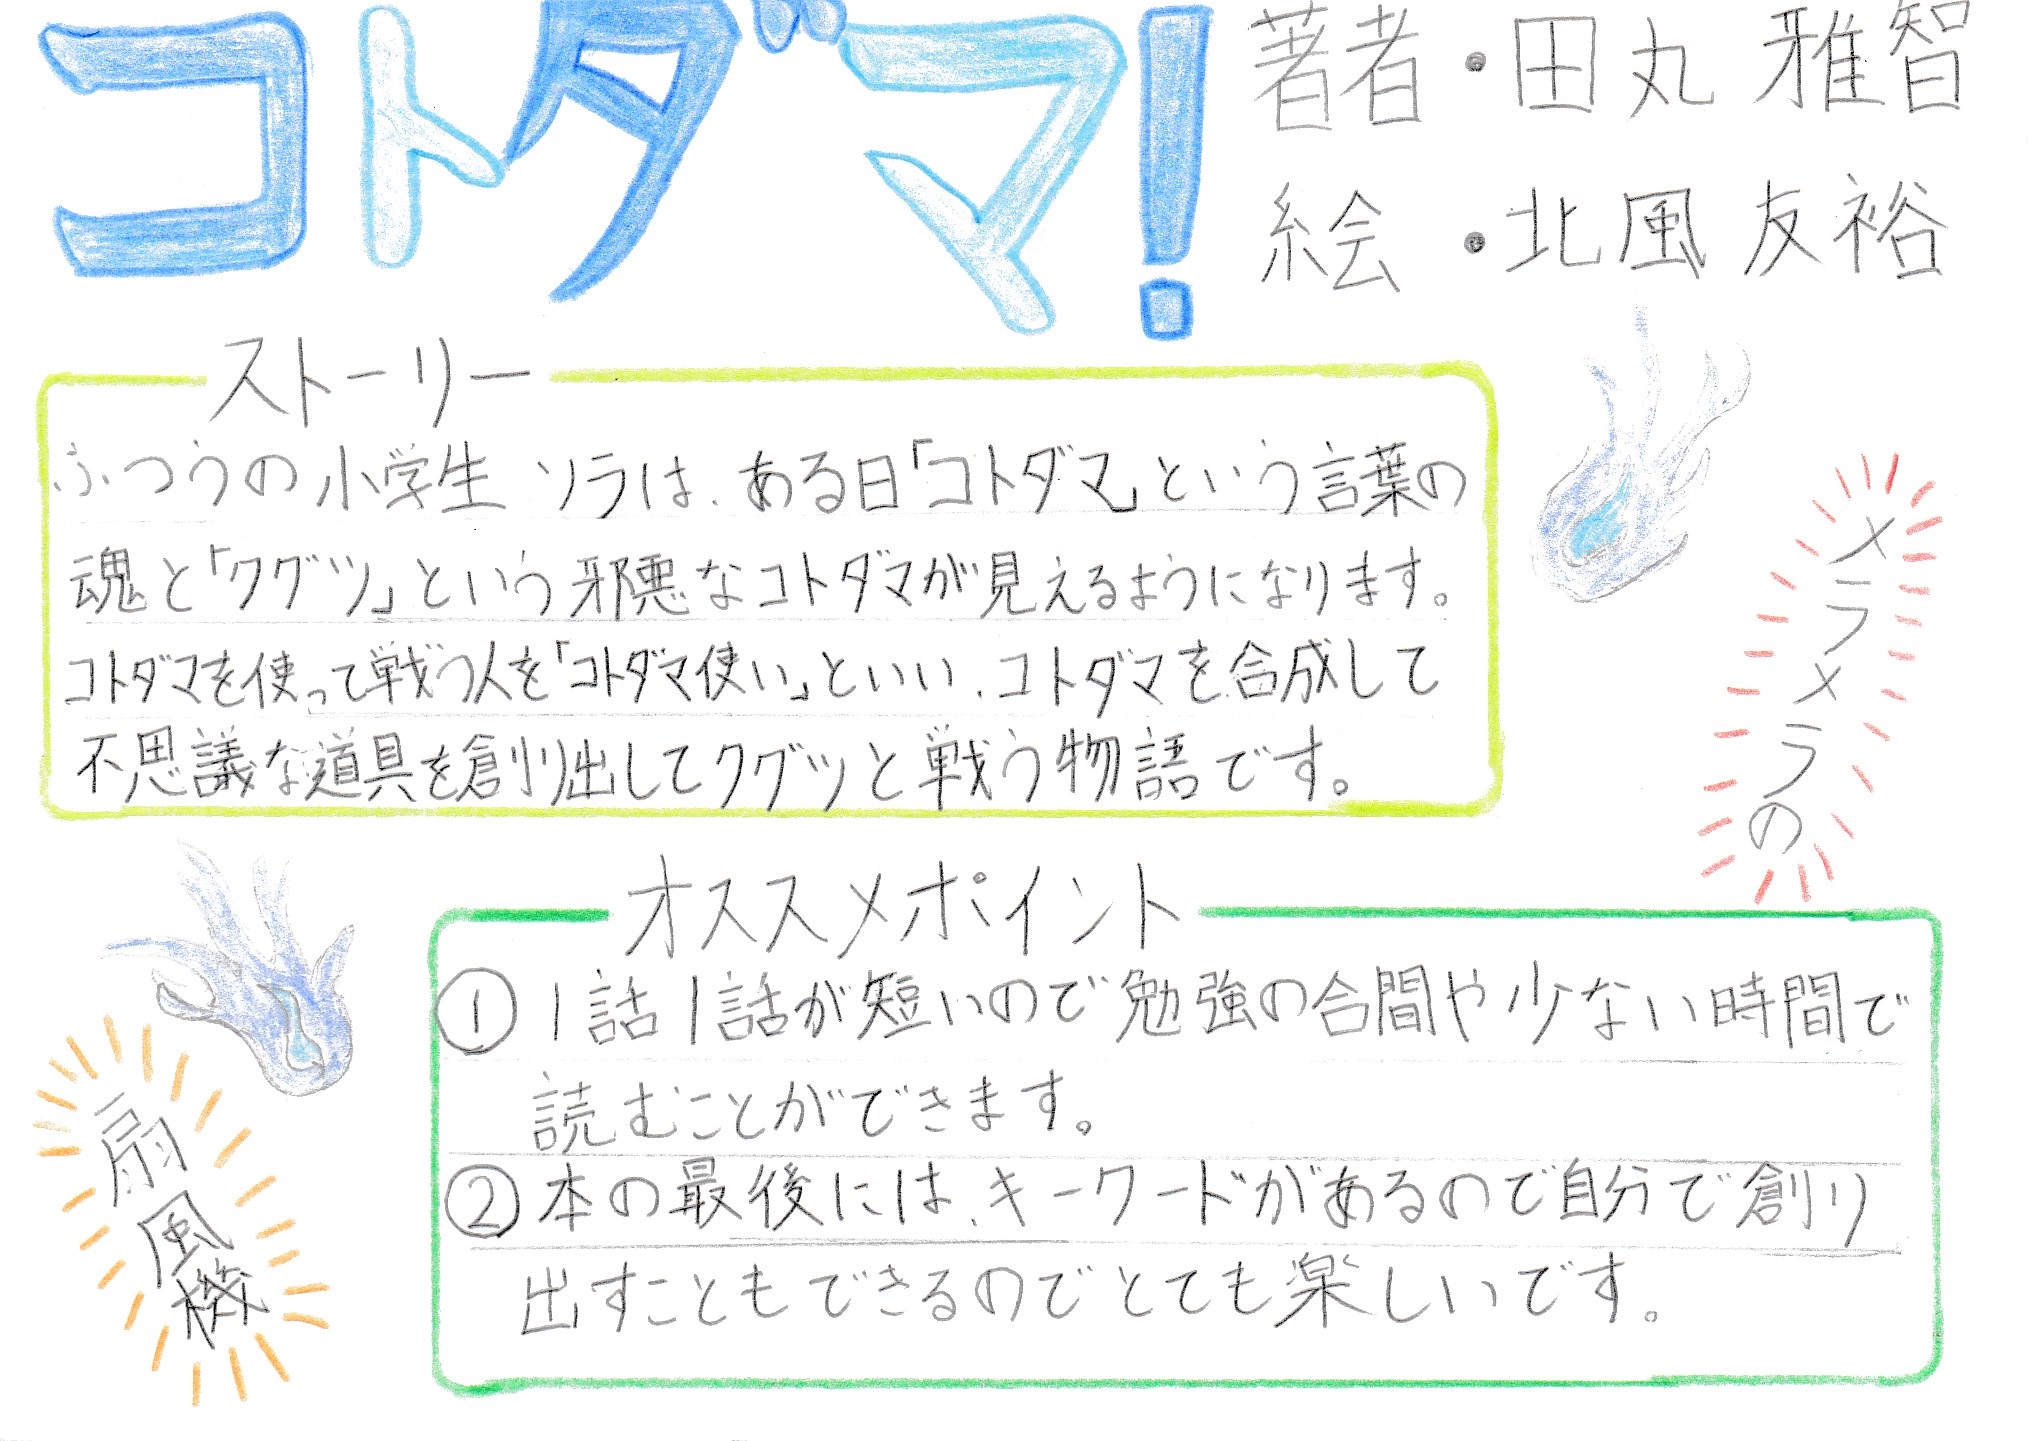 コトダマ!
著者・田丸 雅智
絵・北風 友裕
ストーリー
ふつうの小学生 ソラは、ある日「コトダマ」という言葉の
魂と「クグツ」という邪悪なコトダマが見えるようになります。
コトダマを使って戦う人を「コトダマ使い」といい、コトダマを合成して
不思議な道具を創り出してクグツと戦う物語です。
メラメラの
オススメポイント
① 1話1話が短いので勉強の合間や少ない時間で
読むことができます。
② 本の最後には、キーワードがあるので自分で創り
出すこともできるのでとても楽しいです。
扇風機